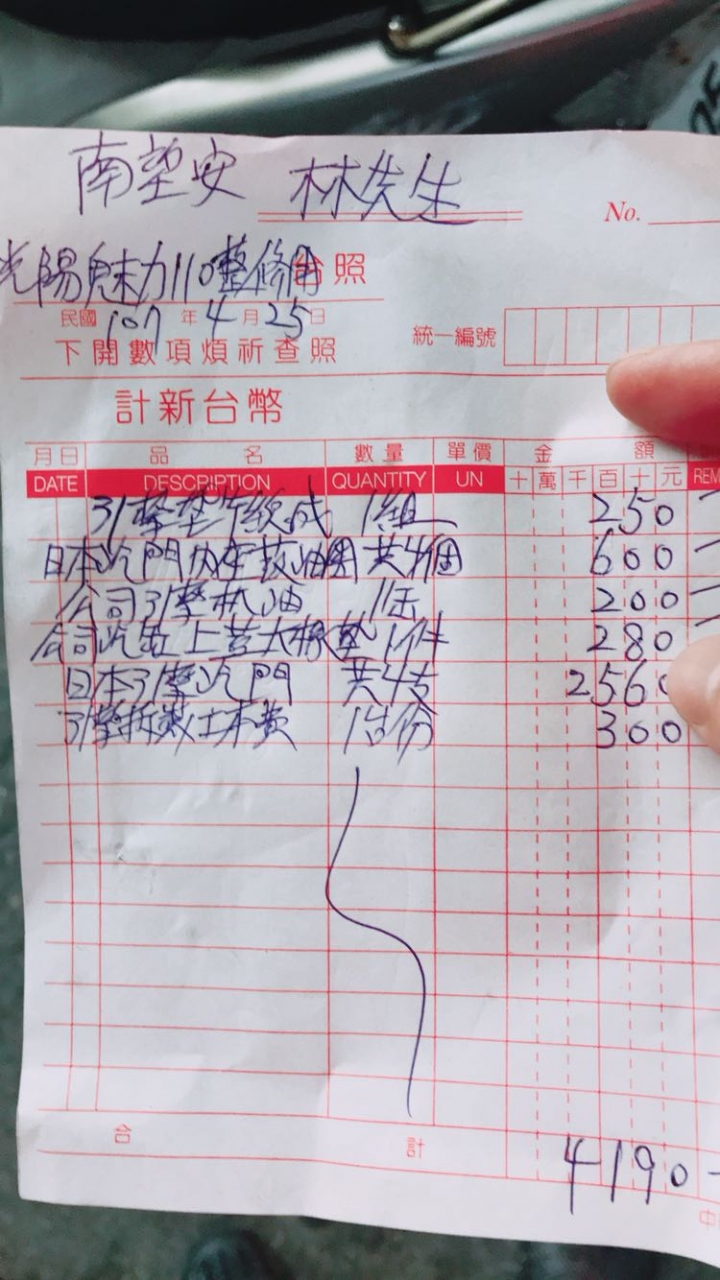 南望安 林先生
No.
光陽魅力110整修周 台照
民國 107 年 4 月 25 日
統一編號
下開數項煩祈查照
計新台幣
月日 品名 數量 單價 金額
DATE DESCRIPTION QUANTITY UN 十 萬 千 百 十 元 REM
引擎墊片總成 1組 250
日本汽門 共4個 600
公司引擎机油 1缶 200
公司汽缸上 墊 1件 280
日本引擎汽門 共4支 2560
引擎拆裝工本費 1台份 300
合計 4190